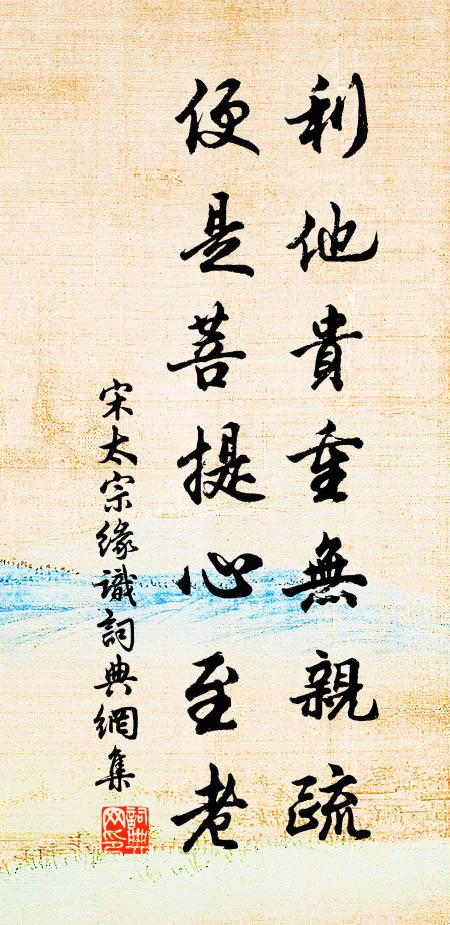 利他貴重無親疏
便是菩提心至老
宋太宗緣識詞典網集
詞典網印